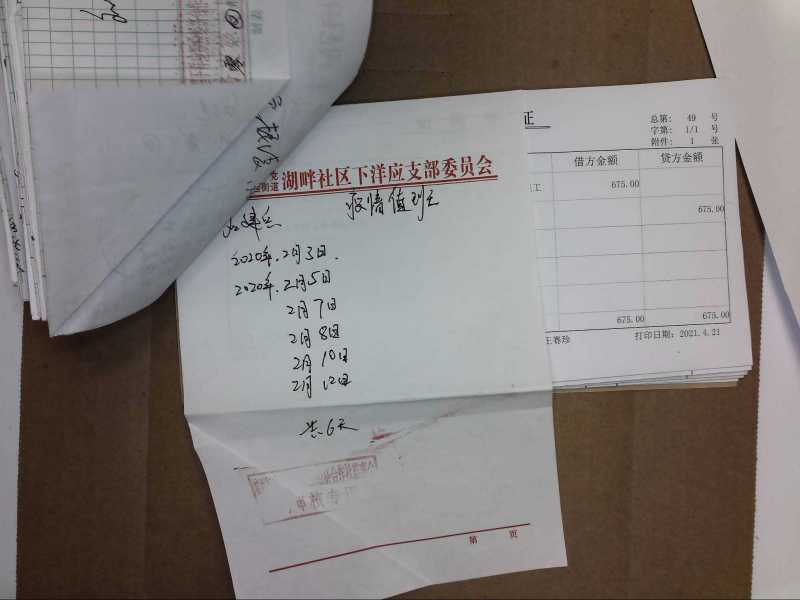 证
总第: 49 号
字第: 1/1 号
附件: 1 张
借方金额 贷方金额
工 675.00
675.00
675.00 675.00
王春珍 打印日期: 2021.4.21
党
街道 湖畔社区下洋应支部委员会
疫情值班
2020年.2月3日.
2020年.2月5日
2月7日
2月8日
2月10日
2月12日
共6天
审核专
第 页